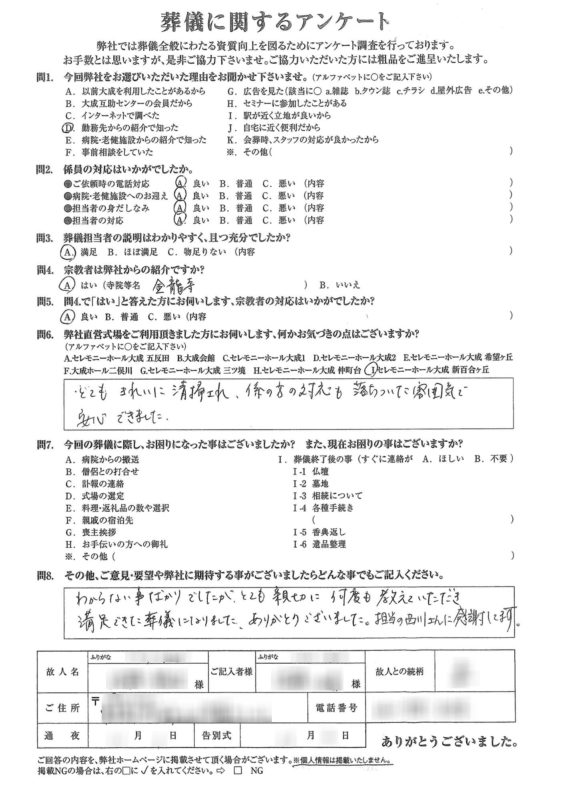 葬儀に関するアンケート
弊社では葬儀全般にわたる資質向上を図るためにアンケート調査を行っております。
お手数とは思いますが、是非ご協力下さいませ。ご協力いただいた方には粗品をご進呈いたします。
問1. 今回弊社をお選びいただいた理由をお聞かせ下さいませ。(アルファベットに〇をご記入下さい)
A. 以前大成を利用したことがあるから
B. 大成互助センターの会員だから
C. インターネットで調べた
D. 勤務先からの紹介で知った
E. 病院・老健施設からの紹介で知った
F. 事前相談をしていた
G. 広告を見た(該当に〇 a.雑誌 b.タウン誌 c.チラシ d.屋外広告 e.その他)
H. セミナーに参加したことがある
I. 駅が近く立地が良いから
J. 自宅に近く便利だから
K. 会葬時、スタッフの対応が良かったから
※. その他( )
問2. 係員の対応はいかがでしたか。
●ご依頼時の電話対応 A. 良い B. 普通 C. 悪い (内容 )
●病院・老健施設へのお迎え A. 良い B. 普通 C. 悪い (内容 )
●担当者の身だしなみ A. 良い B. 普通 C. 悪い (内容 )
●担当者の対応 A. 良い B. 普通 C. 悪い (内容 )
問3. 葬儀担当者の説明はわかりやすく、且つ充分でしたか?
A. 満足 B. ほぼ満足 C. 物足りない (内容 )
問4. 宗教者は弊社からの紹介ですか?
A. はい (寺院等名 金龍寺 ) B. いいえ
問5. 問4.で「はい」と答えた方にお伺いします、宗教者の対応はいかがでしたか?
A. 良い B. 普通 C. 悪い (内容 )
問6. 弊社直営式場をご利用頂きました方にお伺いします、何かお気づきの点はございますか?
(アルファベットに〇をご記入下さい)
A.セレモニーホール大成 五反田 B.大成会館 C.セレモニーホール大成1 D.セレモニーホール大成2 E.セレモニーホール大成 希望ヶ丘
F.大成ホール二俣川 G.セレモニーホール大成 三ツ境 H.セレモニーホール大成 仲町台 I.セレモニーホール大成 新百合ヶ丘
とても きれいに 清掃され、係の方の対応も 落ちついた雰囲気で
安心 できました.
問7. 今回の葬儀に際し、お困りになった事はございましたか? また、現在お困りの事はございますか?
A. 病院からの搬送
B. 僧侶との打合せ
C. 訃報の連絡
D. 式場の選定
E. 料理・返礼品の数や選択
F. 親戚の宿泊先
G. 喪主挨拶
H. お手伝いの方への御礼
※. その他 ( )
I. 葬儀終了後の事 (すぐに連絡が A. ほしい B. 不要)
I-1 仏壇
I-2 墓地
I-3 相続について
I-4 各種手続き
( )
I-5 香典返し
I-6 遺品整理
問8. その他、ご意見・要望や弊社に期待する事がございましたらどんな事でもご記入ください。
わからない事ばかりでしたが、とても 親切に 何度も 教えていただき
満足できた葬儀になりました、ありがとうございました。担当の西川さんに感謝してます。
故人名 ふりがな 様 ご記入者様 ふりがな 様 故人との続柄
ご住所 〒 電話番号
通夜 月 日 告別式 月 日
ありがとうございました。
ご回答の内容を、弊社ホームページに掲載させて頂く場合がございます。※個人情報は掲載いたしません。
掲載NGの場合は、右の□に✓を入れてください。⇨ □ NG